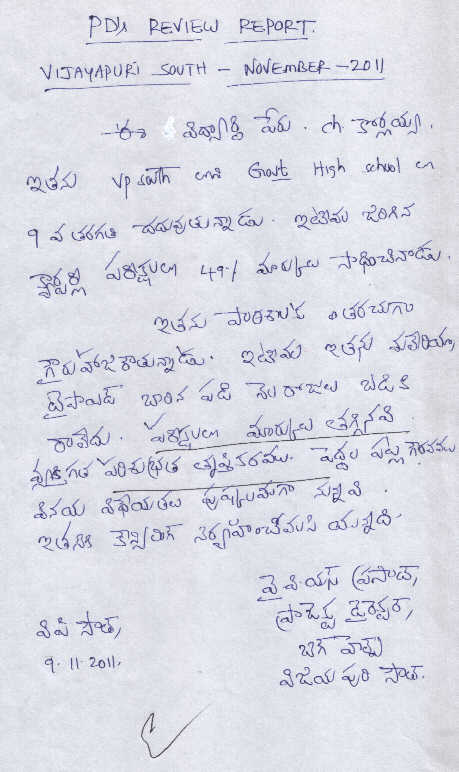 PD's REVIEW REPORT.
VIJAYAPURI SOUTH - NOVEMBER - 2011
ఈ విద్యార్థి పేరు. ch. కోర్లయ్య.
ఇతను VP South లోని Govt High school లో
9 వ తరగతి చదువుతున్నాడు. ఇటీవల జరిగిన
క్వార్టర్లీ పరీక్షలలో 49% మార్కులు సాధించినాడు.
ఇతను పాఠశాలకు తరచుగా
గైరుహాజరౌతున్నాడు. ఇటీవల ఇతను మలేరియా,
టైఫాయిడ్ బారిన పడి నెల రోజులు బడికి
రాలేదు. పరీక్షలలో మార్కులు తగ్గినవి.
వ్యక్తిగత పరిశుభ్రత తృప్తికరము. పెద్దల పట్ల గౌరవము
వినయ విధేయతలు పుష్కలముగా నున్నవి.
ఇతనికి కౌన్సిలింగ్ నిర్వహించవలసి యున్నది.
వై వి యస్ ప్రసాద్,
ప్రాజెక్టు డైరెక్టర్,
వి పి సౌత్,
9.11.2011.
విజయ పురి సౌత్.